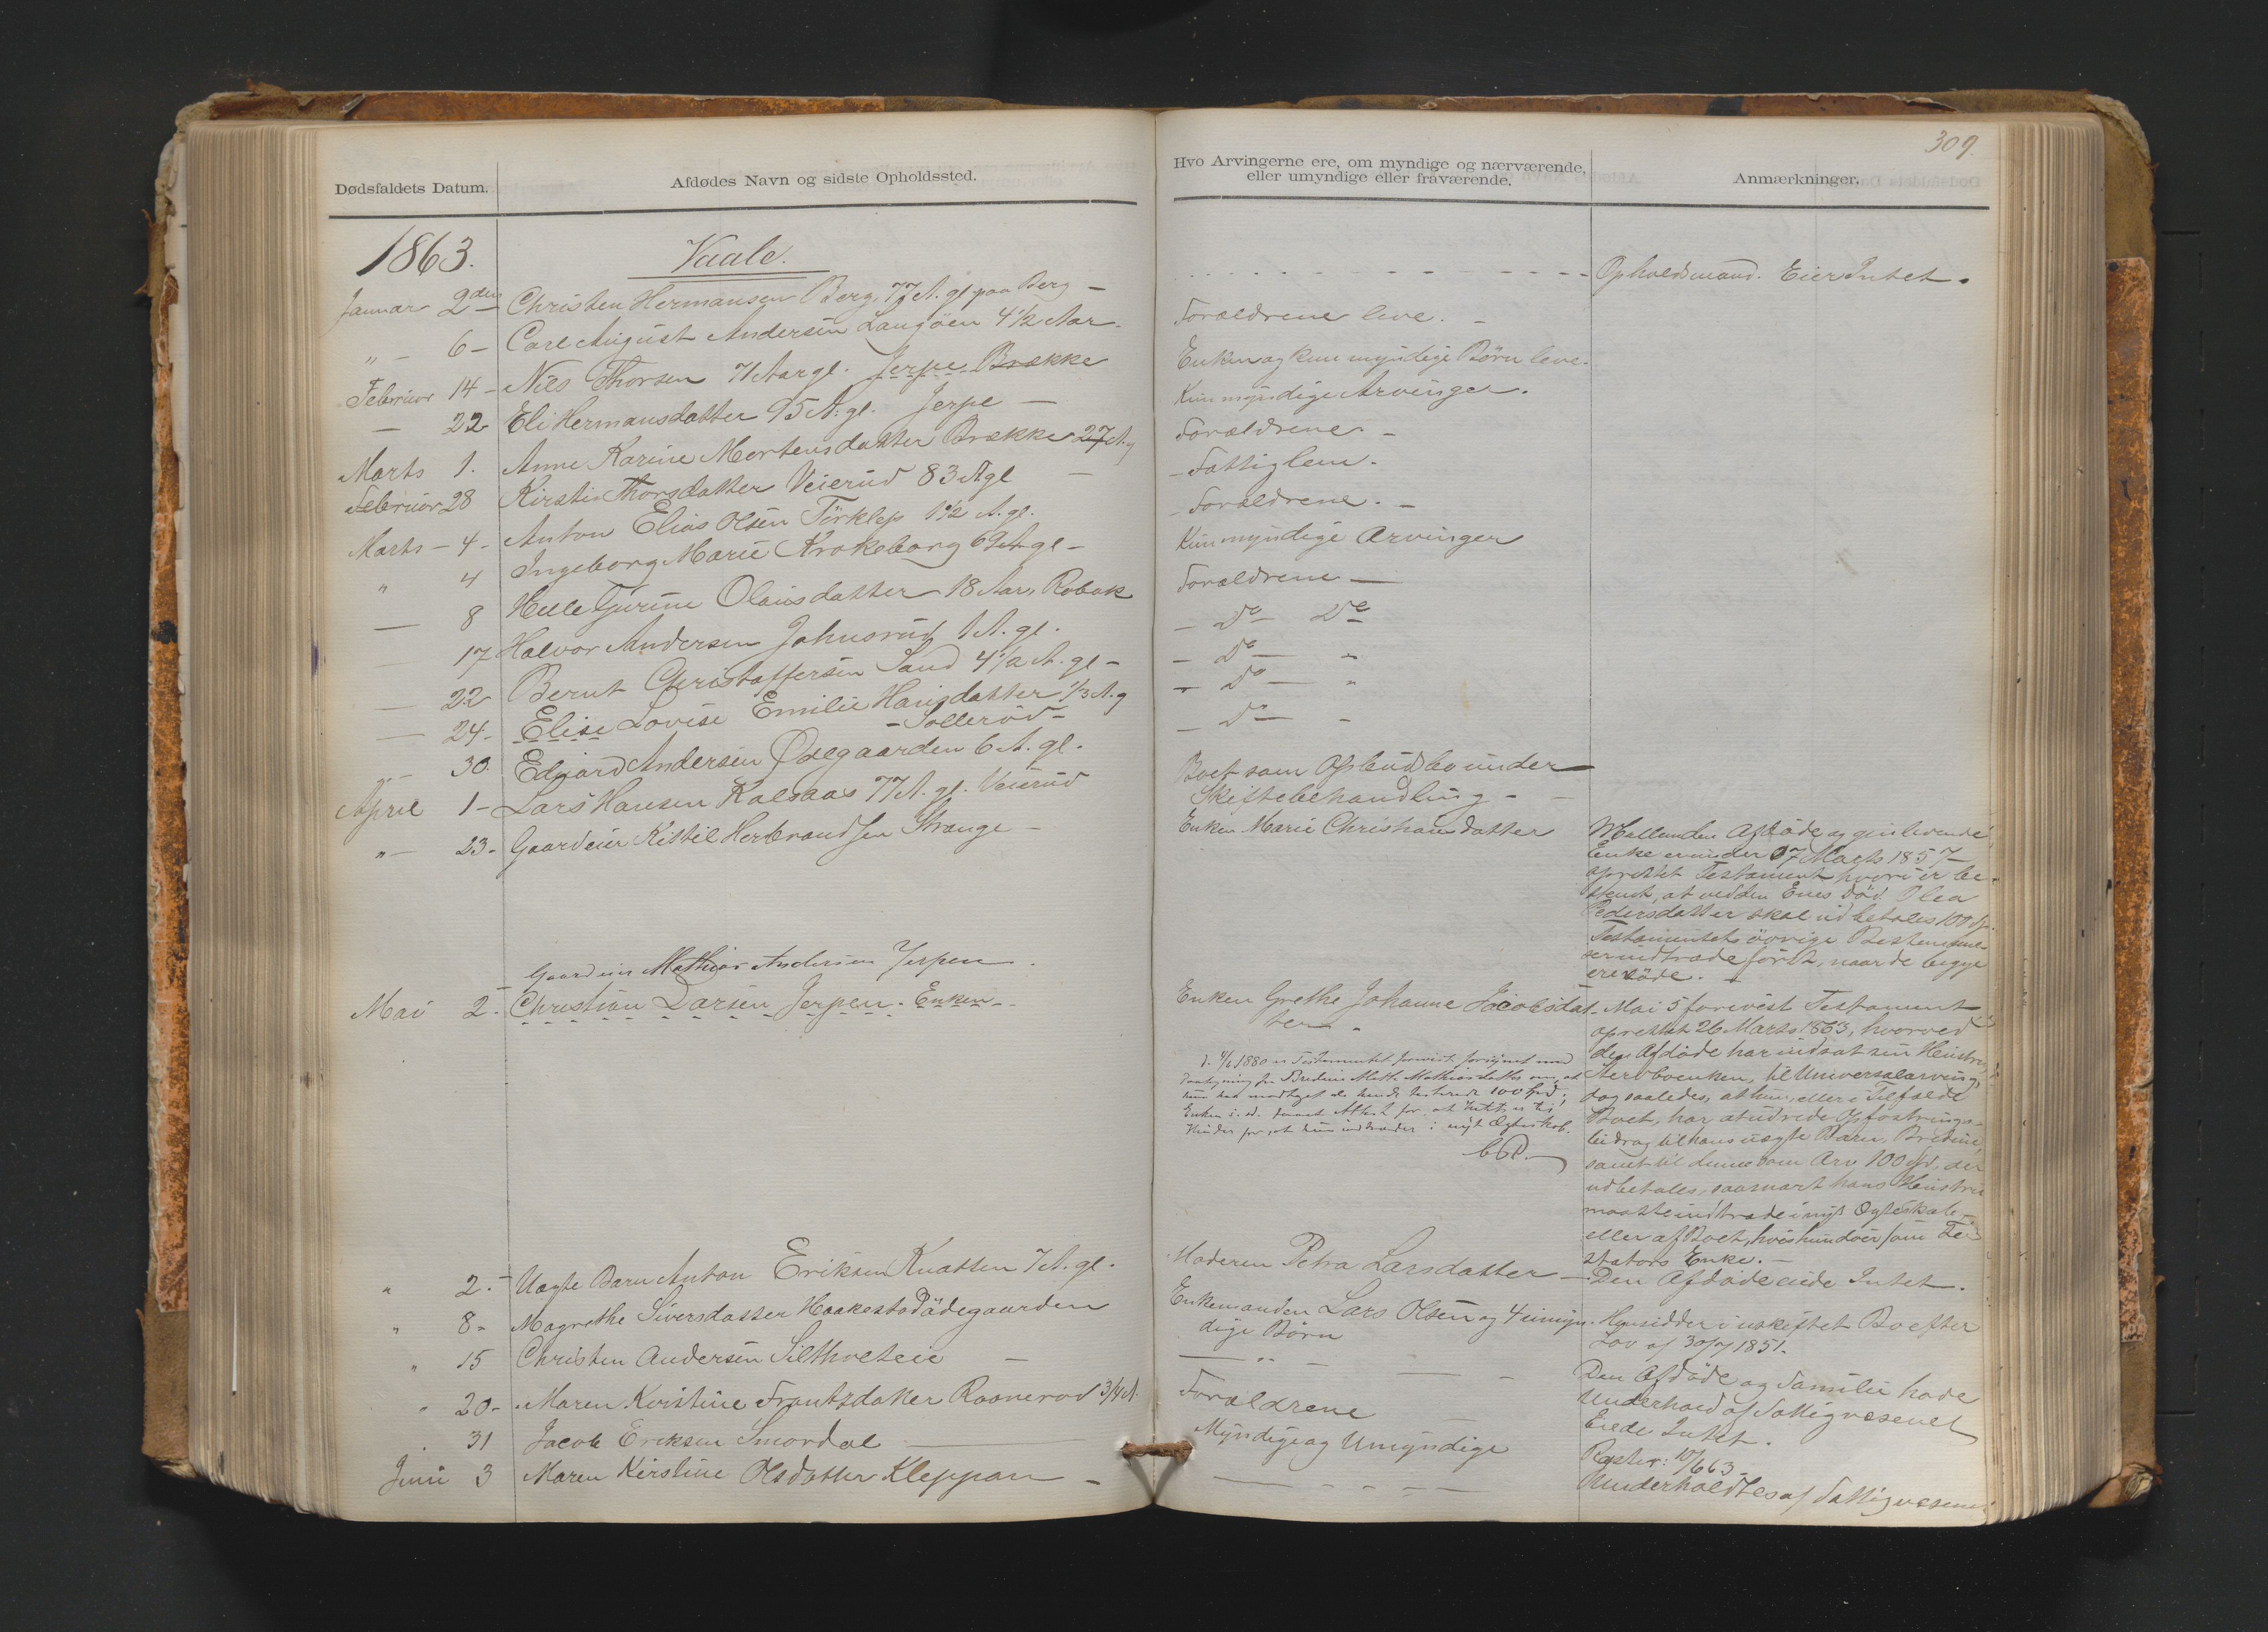 309.
Dødsfaldets Datum.
Afdødes Navn og sidste Opholdssted.
Hvo Arvingerne ere, om myndige og nærværende,
eller umyndige eller fraværende.
Anmærkninger.
1863.
Vaale.
Januar 2den Christen Hermansen Berg, 77 A. gl paa Berg -
Opholdsmand. Eier Intet.
" - 6 - Carl August Andersen Langöen 4 1/2 Aar -
Forældrene leve. -
Februar 14 - Niels Thorsen 71 Aar gl. Jerpe Brække
Enken og kun myndige Börn leve.
- 22 Eli Hermansdatter 95 A. gl. Jerpe -
Kun myndige Arvinger.
Marts 1. Anne Karine Mortensdatter Brække 27 A. g
Forældrene -
Februar 28 Kirstin Thorsdatter Veierud 83 A gl -
- Fattiglem.
Marts - 4 - Anton Elias Olsen Tirklep 1 1/2 A. gl.
- Forældrene. -
" 4 Ingeborg Marie Krokeborg 69 A gl -
Kun myndige Arvinger
- 8 Helle Gurine Olausdatter 18 Aar, Robak
Forældrene -
- 17 Halvor Andersen Johnsrud 1 A. gl.
- Do - Do
- 22 Bernt Christoffersen Sand 4 1/2 A. gl -
- Do - "
- 24 - Elise Lovise Emilie Hansdatter 1/3 A. g
- Sollerød -
- Do - "
" - 30. Edvard Andersen Øregaarden 6 A. gl.
- Do - -
April 1 - Lars Hansen Kalsaas 77 A. gl. Veierud
Boet som Opbudsbo under
Skiftebehandling -
" - 23 - Gaardeier Kittil Herbrandsen Strange -
Enken Marie Christiansdatter
Mellem den Afdöde og genlevende
Enke er under 07 Marts 1857
oprettet Testament hvori er be-
stemt, at ved den Enes Död Olea
Pedersdatter skal udbetales 100 Sp.
Testamentets övrige Bestemmel-
ser indtræde först, naar de begge
ere döde.
Gaardeier Mathias Andersen Jerpen.
Mai 2. Christian Larsen Jerpen. Enken -
Enken Grethe Johanne Jacobsdat-
ter.
d. 4/6 1880 er Testamentet forevist forsynet med
Paategning fra Bredine Mathea Mathiasdatter om, at
hun har modtaget de hende testerede 100 Spd;
Enken i. d. Attest for at Intet er til
Hinder for, at hun indtræder i nyt Ægteskab.
Mai 5 forevist Testament
oprettet 26 Marts 1863, hvorved
den Afdöde har indsat sin Hustru,
Aerboenken, til Universalarving,
dog saaledes, at hun, eller i Tilfælde
Boet, har at udrede Opfostrings-
bidrag til hans uægte Barn, Bredine,
samt til denne som Arv 100 Spd, der
udbetales, saasnart hans Hustru
maatte indtræde i nyt Ægteskab -
eller af Boet, hvis hun döer som Te-
stators Enke. -
" 2. - Uægte Barn Anton Eriksen Knatten 7 A. gl.
Moderen Petra Larsdatter -
Den Afdöde eiede Intet.
" 8 - Magrethe Siversdatter Haakestad ödegaarden
Enkemanden Lars Olsen og 4 umyn-
dige Börn
Hensidder i uskiftet Bo efter
Lov af 30/7 1851.
" 15 Christen Andersen Silthveteie -
- " -
Den Afdöde og Familie havde
Underhold af Fattigvæsenet
" 20 - Maren Kirstine Frantzdatter Raanerød 3/4 A.
Forældrene
Eiede Intet.
31 Jacob Eriksen Smørdal -
Myndige og Umyndige
10/6 63.
Juni 3 Maren Kirstine Olsdatter Kleppan -
Underholdtes af Fattigvæsenet